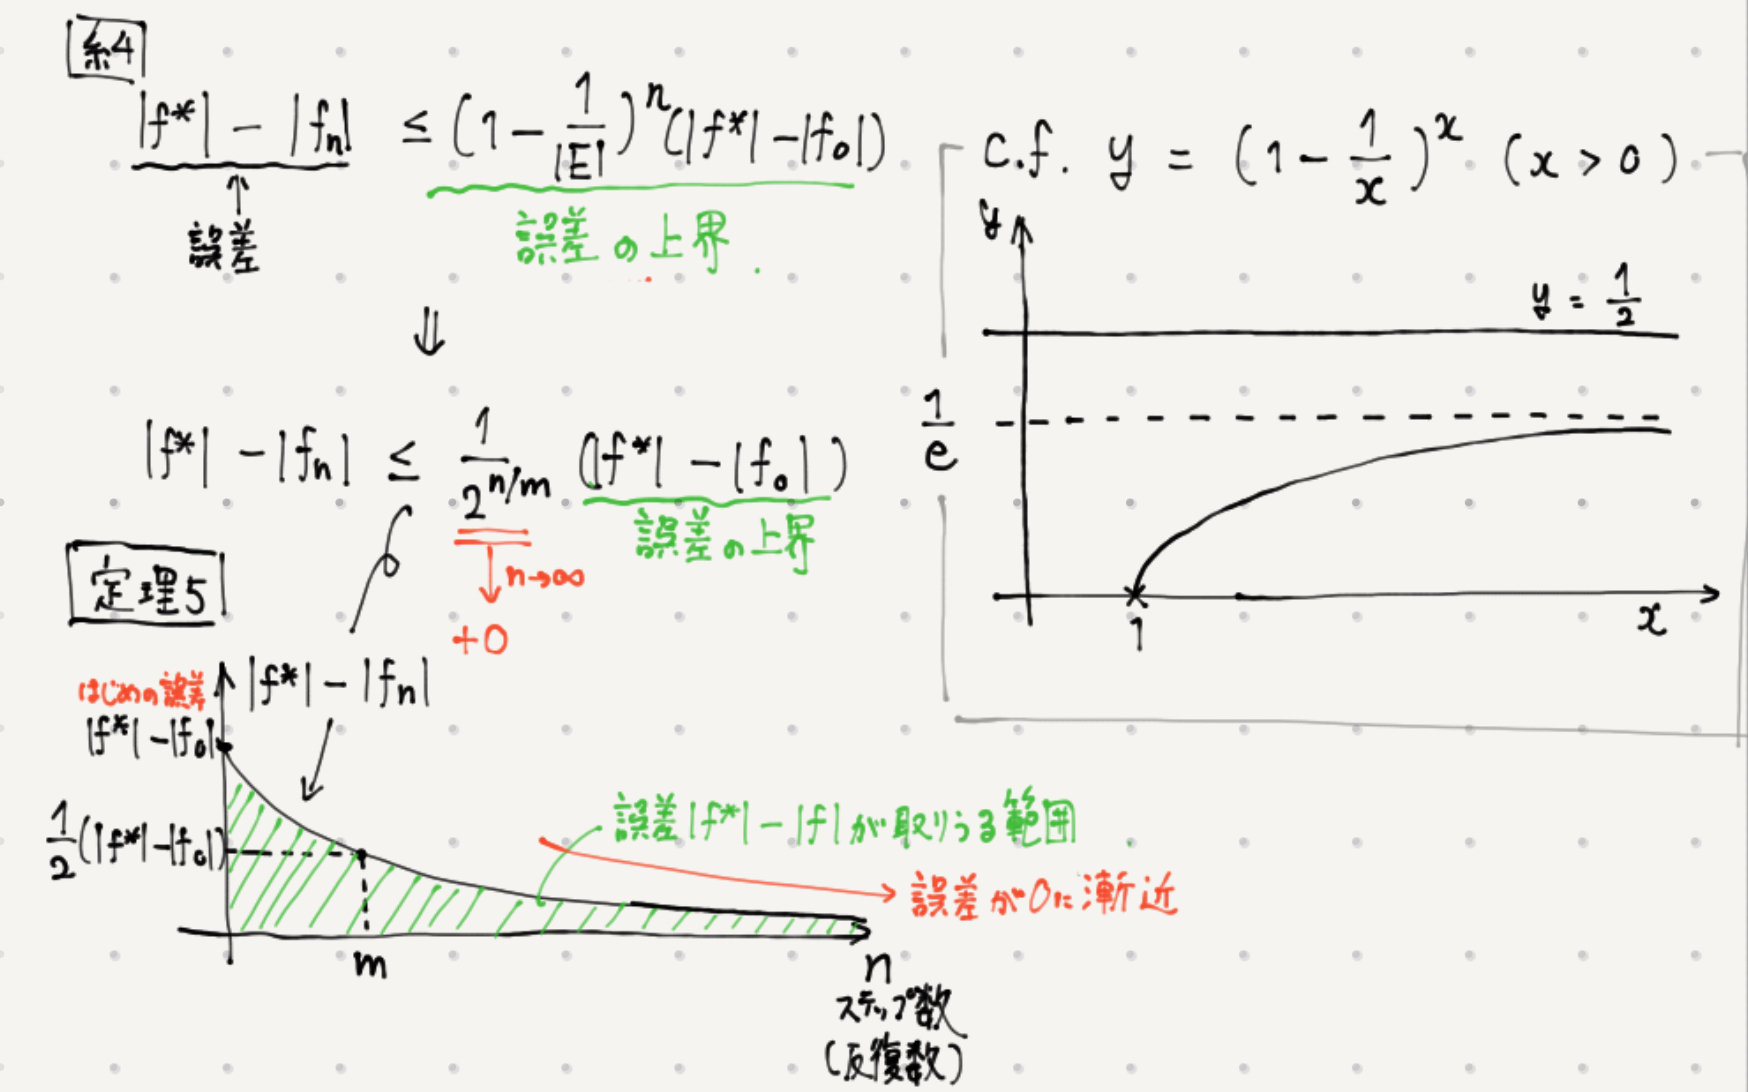 系4
|f*| - |fn| ≤ (1 - 1/|E|)^n (|f*| - |f0|)
↑
誤差
誤差の上界
⇓
|f*| - |fn| ≤ 1/2^(n/m) (|f*| - |f0|)
誤差の上界
n→∞
+0
定理5
|f*| - |fn|
はじめの誤差
|f*| - |f0|
1/2 (|f*| - |f0|)
誤差|f*| - |f|が取りうる範囲
誤差が0に漸近
m
n
ステップ数
(反復数)
c.f. y = (1 - 1/x)^x (x > 0)
y
y = 1/2
1/e
1
x